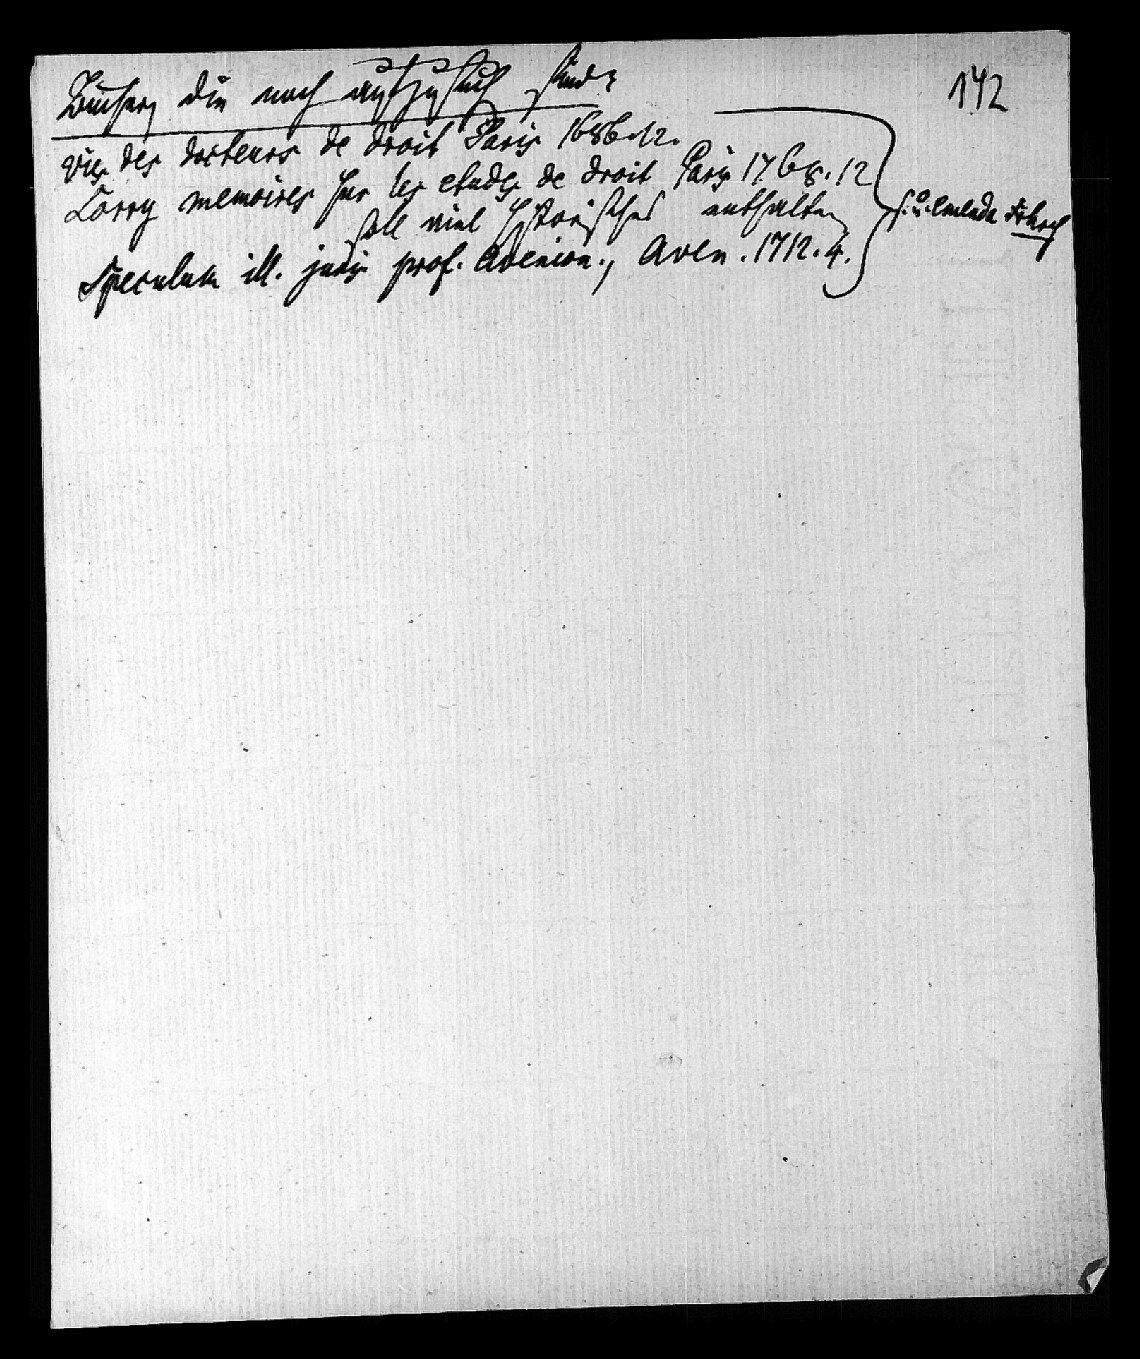 142
Bücher, die noch aufzusuchen sind:
vies des docteurs de droit Paris 1686. 12.
Lorry memoires sur les etudes de droit Paris 1768. 12
soll viel historisches enthalten
Speculum ill. juris prof. Avenion., Aven. 1712. 4.